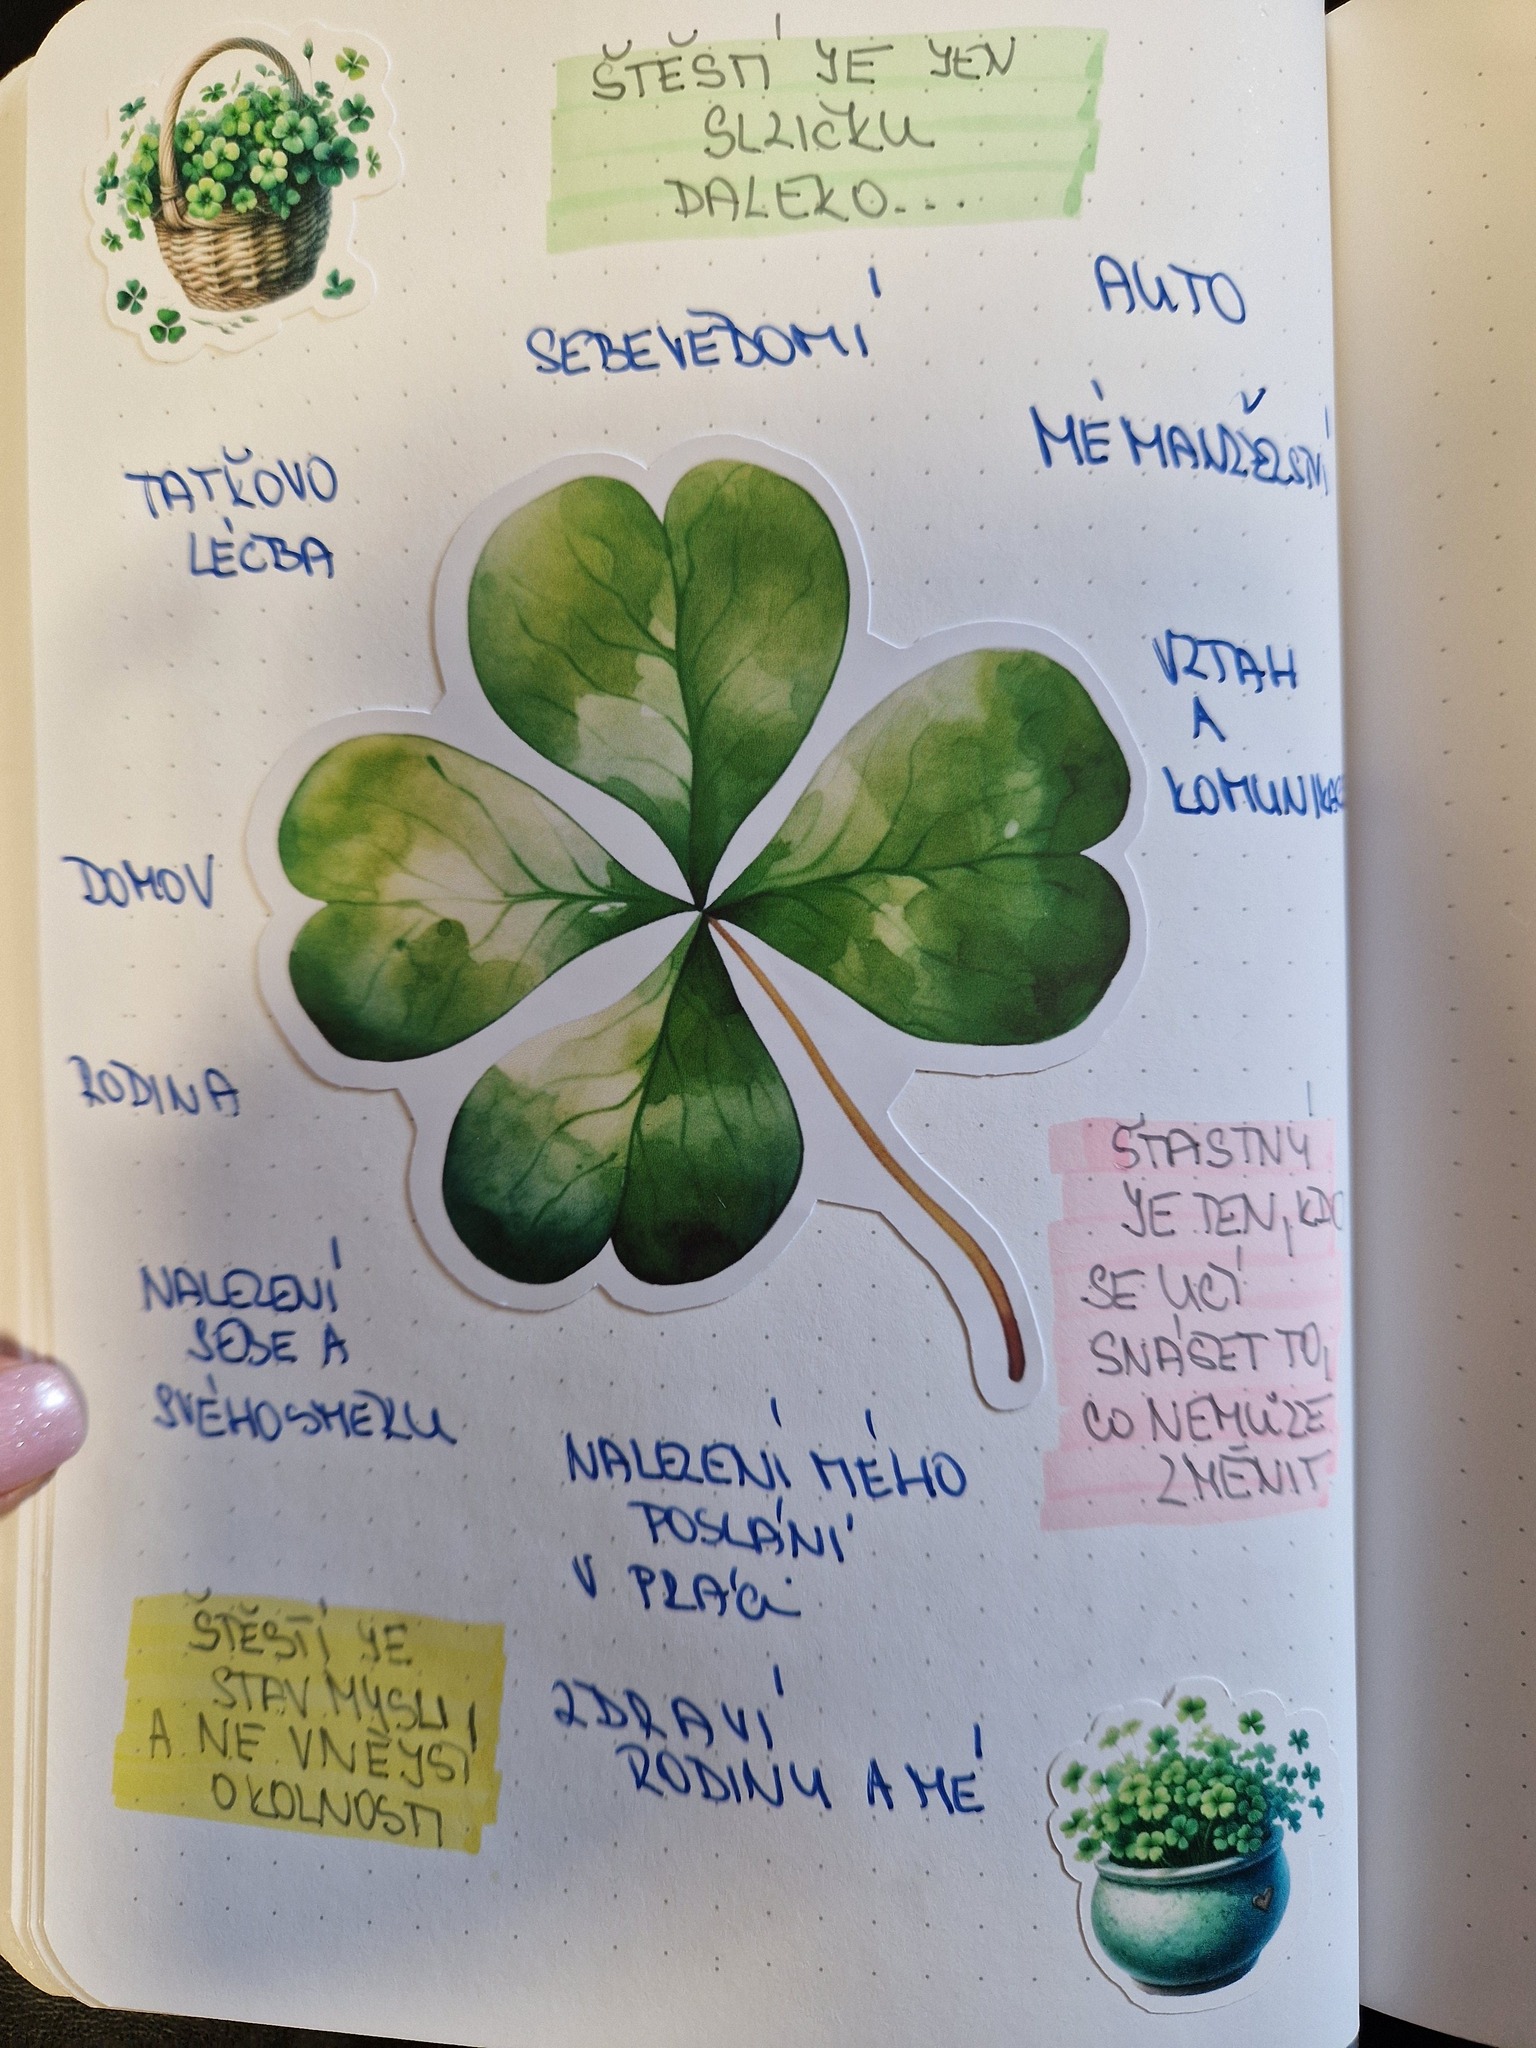 ŠTĚSTÍ JE JEN
SLZIČKU
DALEKO...
SEBEVĚDOMÍ
AUTO
MÉ MANŽELSTVÍ
TAŤKOVO
LÉČBA
VZTAH
A
KOMUNIKACE
DOMOV
RODINA
ŠŤASTNÝ
JE TEN, KDO
SE UČÍ
SNÁŠET TO,
CO NEMŮŽE
ZMĚNIT
NALEZENÍ
SEBE A
SVÉHO SMĚRU
NALEZENÍ MÉHO
POSLÁNÍ
V PRÁCI
ŠTĚSTÍ JE
STAV MYSLI,
A NE VNĚJŠÍ
OKOLNOSTI
ZDRAVÍ
RODINY A MÉ